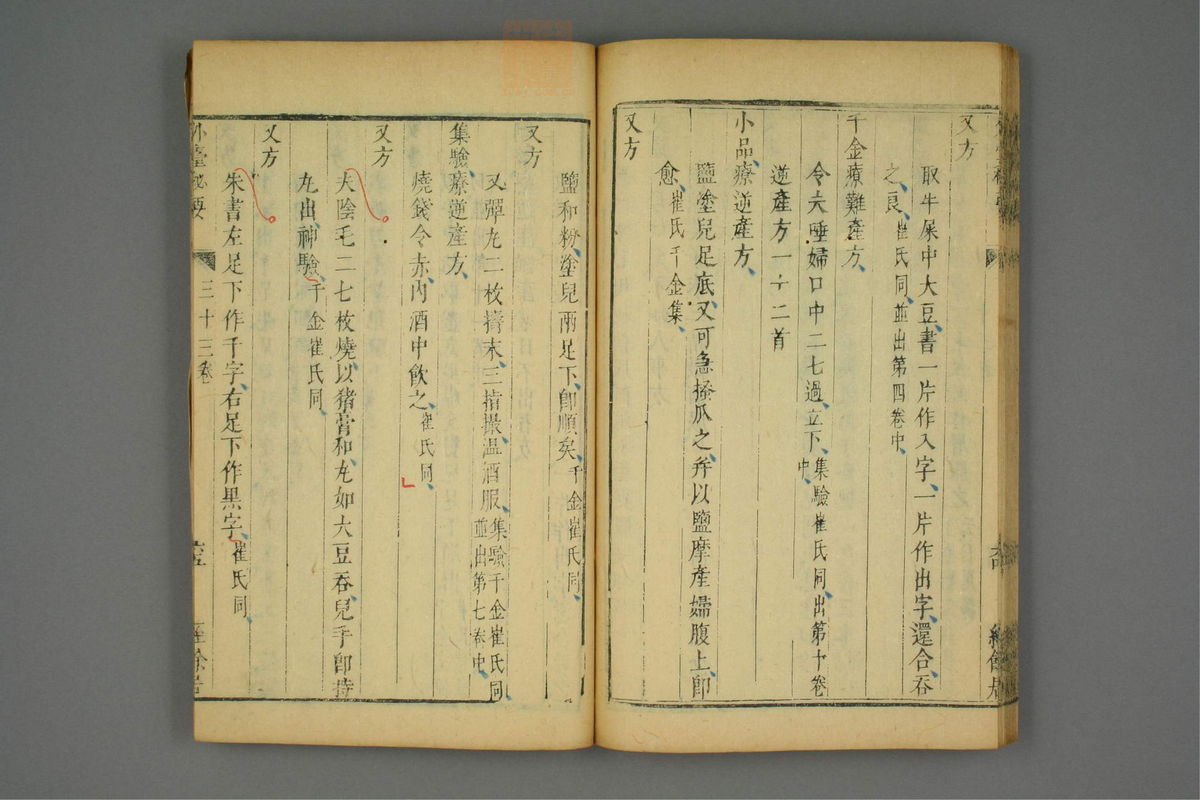 又方
取牛屎中大豆書一片作入字一片作出字還合吞
之良崔氏同並出第四卷中
千金療難產方
令夫唾婦口中二七過立下集驗崔氏同出第十卷
中
逆產方一十二首
小品療逆產方
鹽塗兒足底又可急搔爪之并以鹽摩產婦腹上即
愈崔氏千金集
又方
鹽和粉塗兒兩足下即順矣千金崔氏同
又方
又彈丸二枚擣末三指撮温酒服集驗千金崔氏同
並出第七卷中
集驗療逆產方
燒錢令赤內酒中飲之崔氏同
又方
夫陰毛二七枚燒以猪膏和丸如大豆吞兒手即持
丸出神驗千金崔氏同
又方
朱書左足下作千字右足下作黑字崔氏同
外臺祕要
三十三卷
六五
經餘居